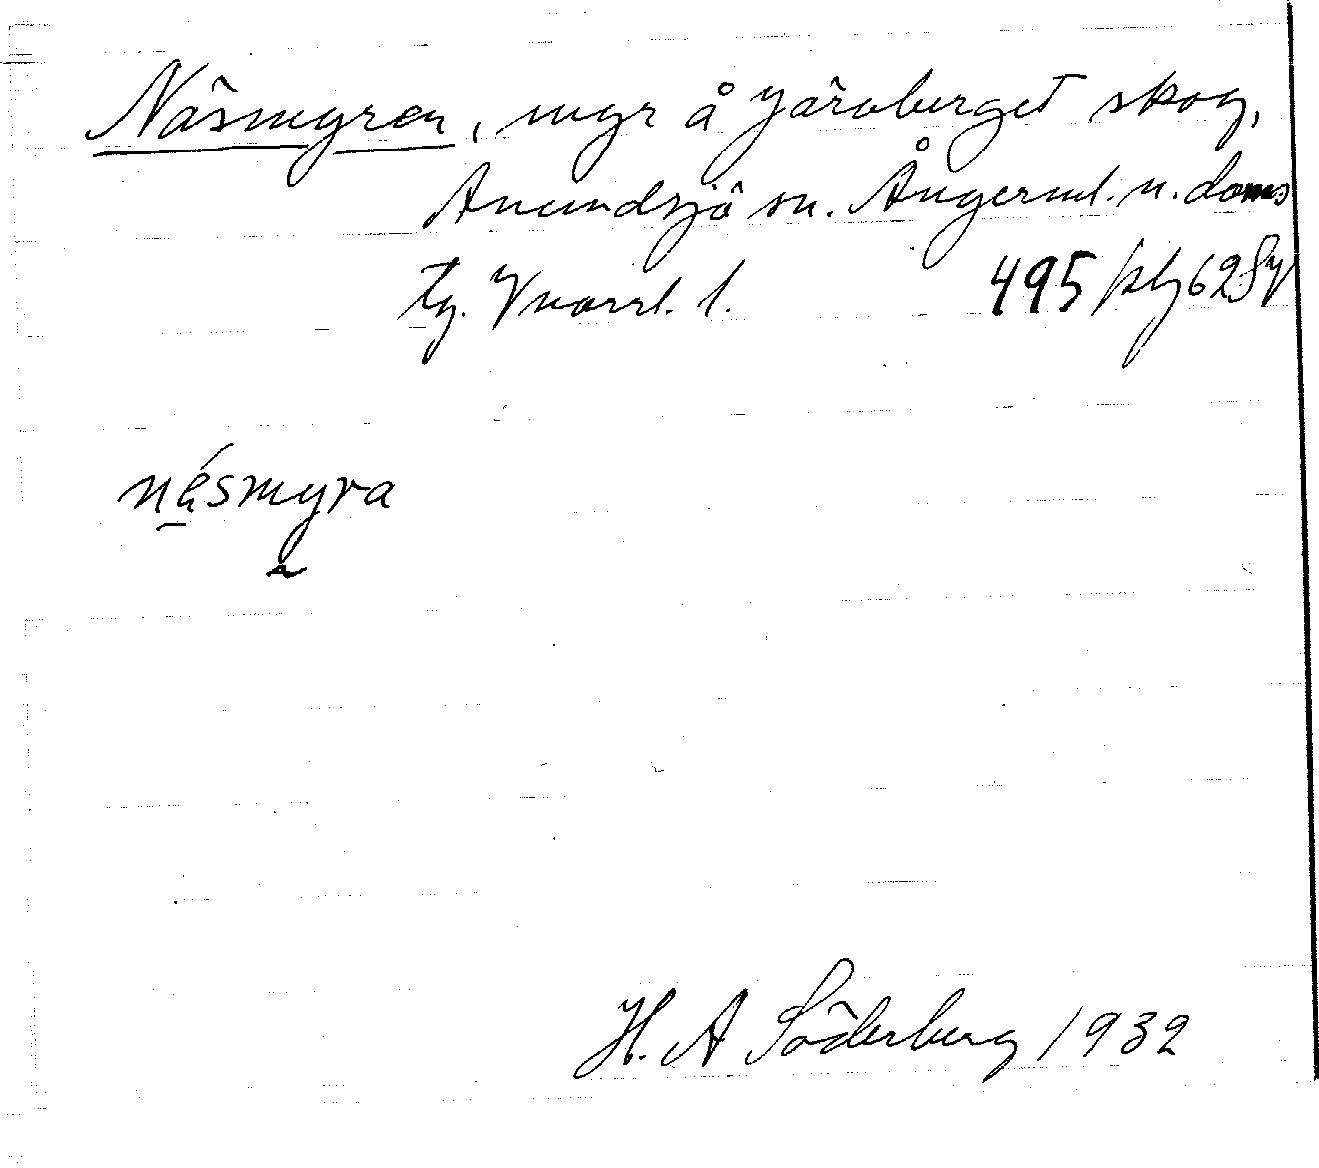 Näsmyren, myr å Järvberget skog,
Anundsjö sn. Ångerml. n. doms
tg. Vnorrl. l. 495 bl 62 Sy
nésmyra
H. A Söderberg 1932